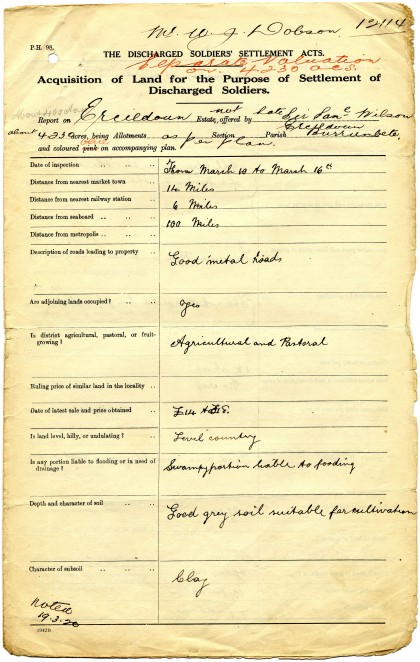 Mr. W. J. Dobson
12114
P.H. 98.
THE DISCHARGED SOLDIERS' SETTLEMENT ACTS.
Separate Valuation
on 4230 acs.
Acquisition of Land for the Purpose of Settlement of
Discharged Soldiers.
Report on Ercildoun not Estate, offered by late Sir Sam^l Wilson
Ercildoun
about 4230 acres, being Allotments as per Section plan. Parish Burrumbete
and coloured pink on accompanying plan.
Date of inspection .. .. From March 10 to March 16th
Distance from nearest market town .. 14 Miles
Distance from nearest railway station .. 6 Miles
Distance from seaboard .. ..
Distance from metropolis .. .. 100 Miles
Description of roads leading to property .. Good metal Roads
Are adjoining lands occupied? .. .. Yes
Is district agricultural, pastoral, or fruit-
growing? .. .. .. Agricultural and Pastoral
Ruling price of similar land in the locality ..
Date of latest sale and price obtained .. £14 to £15.
Is land level, hilly, or undulating? .. Level country
Is any portion liable to flooding or in need of
drainage? .. .. .. Swampy portion liable to flooding
Depth and character of soil .. .. Good grey soil suitable for cultivation
Character of subsoil .. .. Clay
Noted
19.3.20